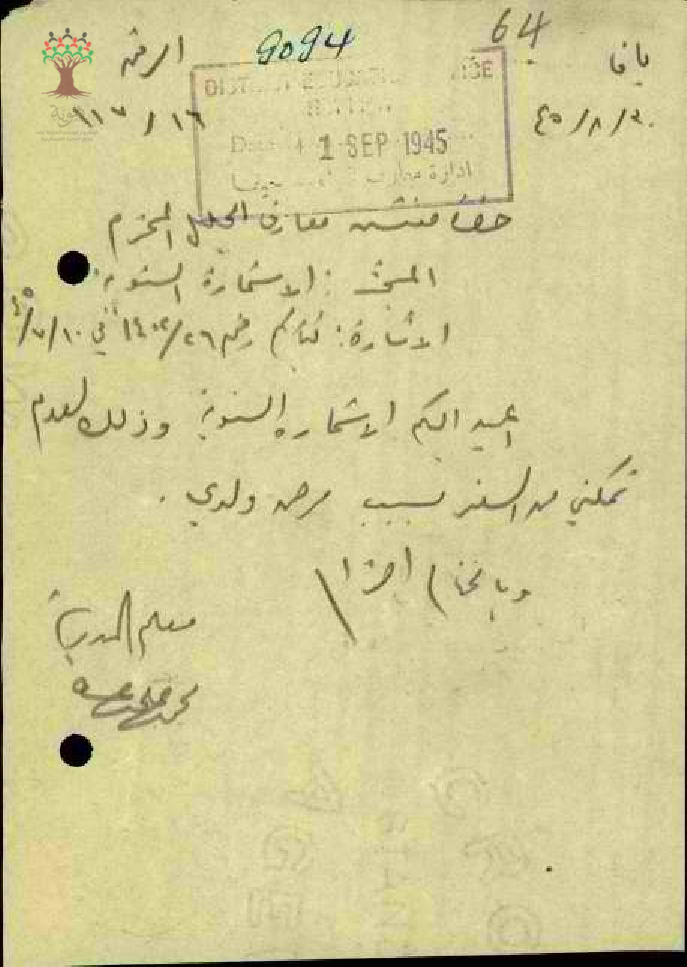 64
9094
يافا
الرقم
٤٥/٨/٣٠
١١٧/١٦
DISTRICT EDUCATION OFFICE
Date 1 SEP 1945
ادارة معارف حيفا
حضرة مفتش معارف الجليل المحترم
المبحث : الاستمارة السنوية
الاشارة : كتابكم رقم ١٤٠٢/٢٦ في ٤٥/٧/١٠
اعيد اليكم الاستمارة السنوية وذلك لعدم
تمكني من السفر بسبب مرض ولدي .
وبالختام احتراما
معلم المدرسة
محمد